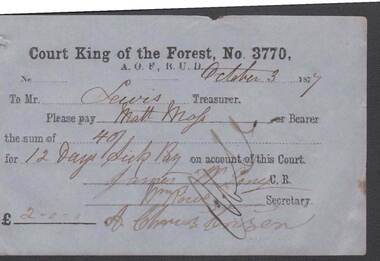 Court King of the Forest, No. 3770,
A. O. F., B. U. D.
No October 3 1877
To Mr. Lewis Treasurer.
Please pay Matt Moss or Bearer
the sum of 40/
for 12 Days Sick Pay on account of this Court.
James C. R.
Secretary.
£ 2-0-0 A Christensen